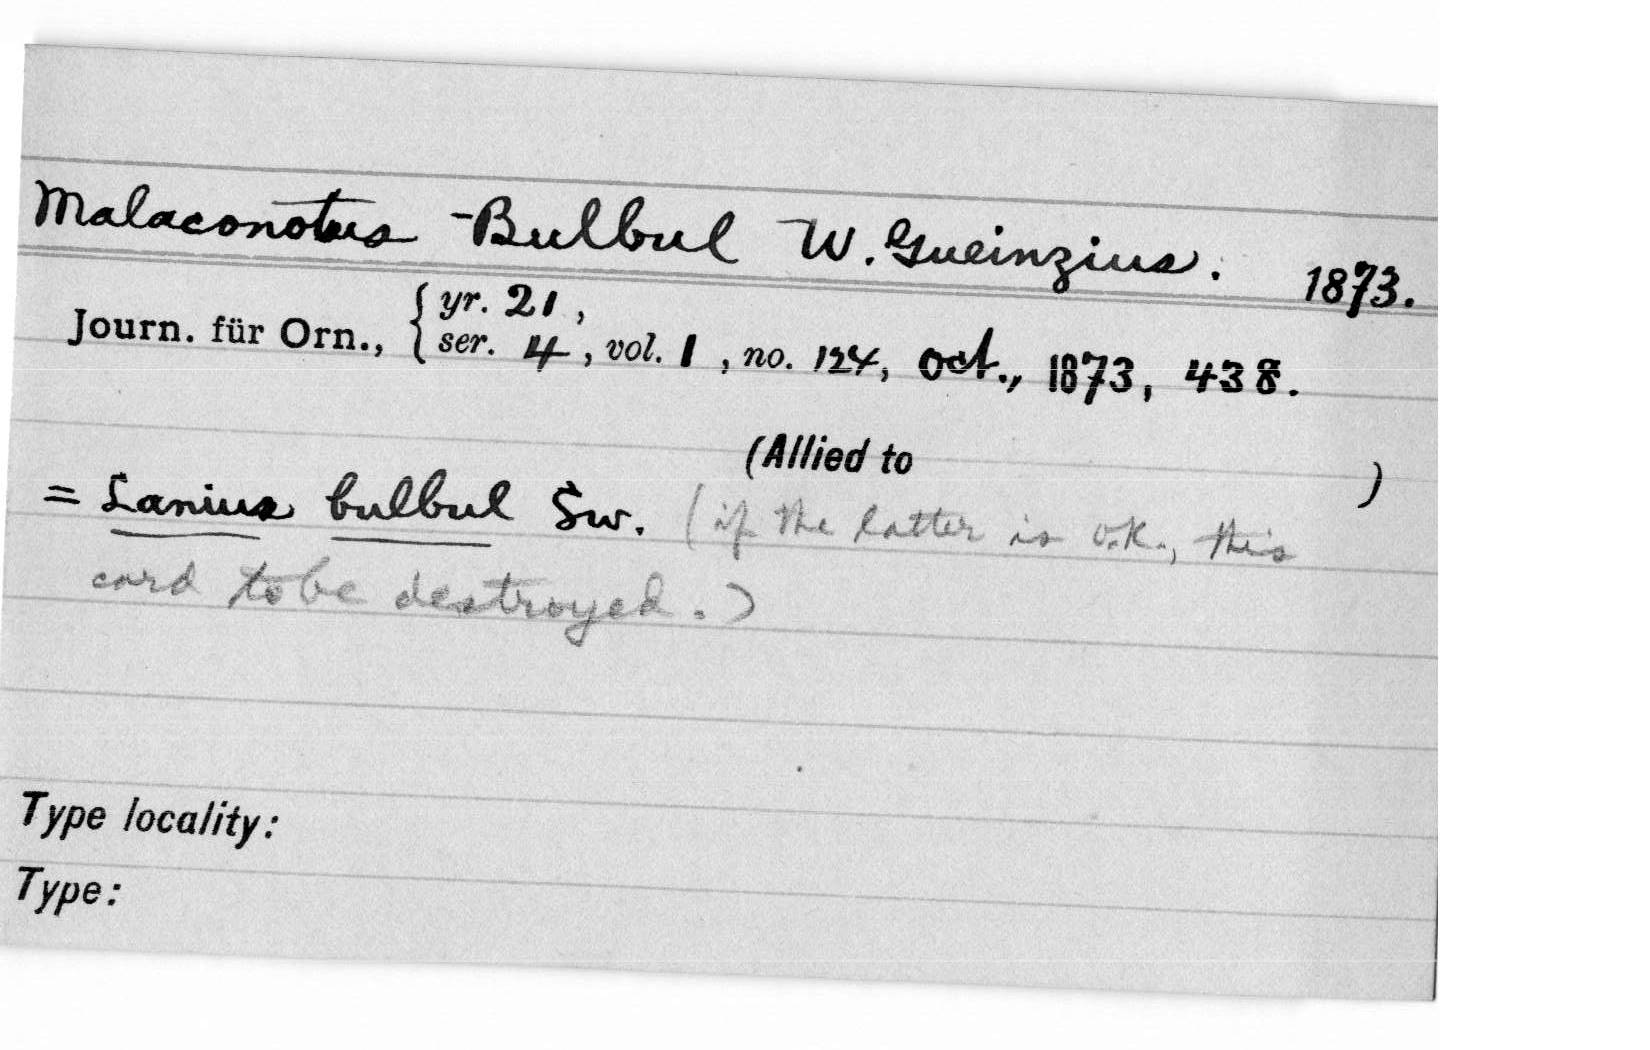 Malaconotus -Bulbul W. Gueinzius. 1873.
Journ. für Orn., { yr. 21,
ser. 4, vol. 1, no. 124, Oct., 1873, 438.
(Allied to )
= Lanius bulbul Sw. (if the latter is O.K., this
card to be destroyed.)
Type locality:
Type: